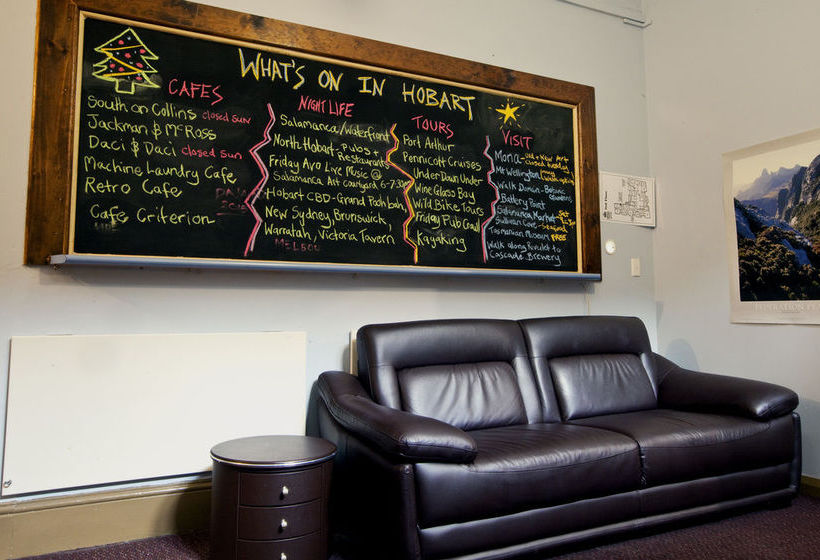 WHAT'S ON IN HOBART
CAFES
South on Collins closed Sun
Jackman & McRoss
Daci & Daci closed Sun
Machine Laundry Cafe
Retro Cafe
Cafe Criterion
NIGHT LIFE
Salamanca/Waterfront
North Hobart- pubs +
Restaurants
Friday Arvo Live Music @
Salamanca Art courtyard 6-7:30
Hobart CBD- Grand Poobah,
New Sydney, Brunswick,
Warratah, Victoria Tavern
TOURS
Port Arthur
Pennicott Cruises
Under Down Under
Wine Glass Bay
Wild Bike Tours
Friday Pub Crawl
Kayaking
VISIT
Mona- Old + New Art
closed Tuesday
Mt Wellington
Walk Domain- Botanic
Gardens
Battery Point
Salamanca Market- Sat
Sullivan Cove-
Tasmanian Museum FREE
Walk along Rivulet to
Cascade Brewery